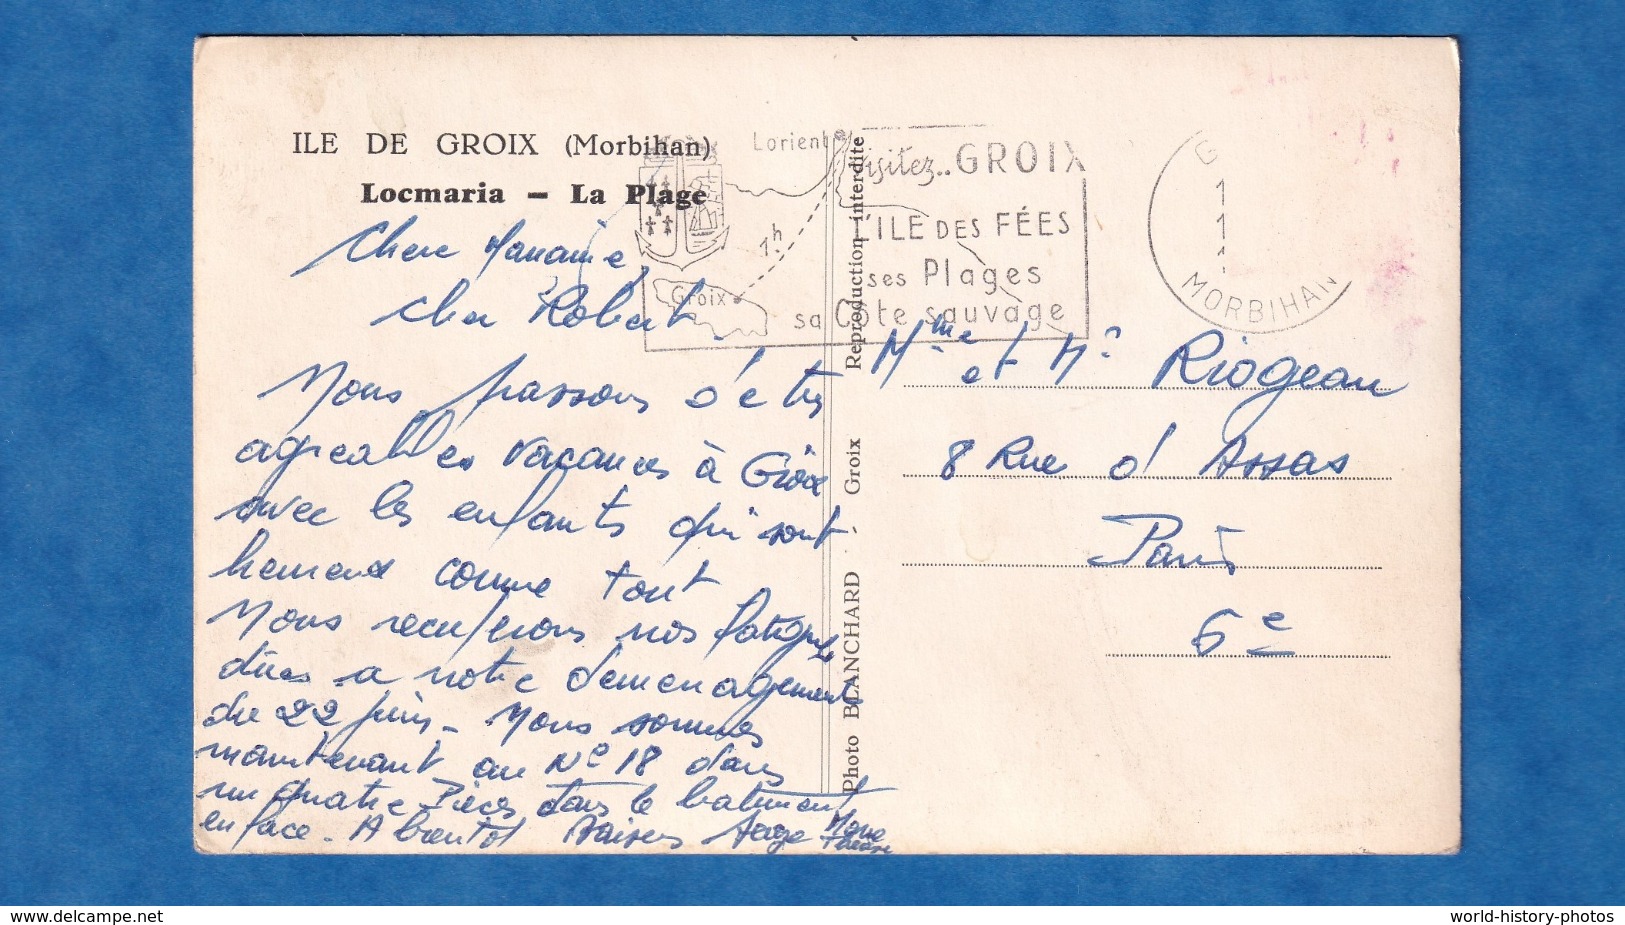 ILE DE GROIX (Morbihan)
Locmaria - La Plage
Lorient
Visitez.. GROIX
L'ILE DES FÉES
ses Plages
sa Côte sauvage
1h
Groix
G
1
1
1
MORBIHAN
Chere
Cher Robert
Nous passons d'e très
agreables vacances à Groix
avec les enfants qui sont
heureux comme tout
Nous recuperons nos fatigues
dues a notre demenagement
du 22 juin - Nous sommes
maintenant au N° 18 dans
un quatre Pièces dans le batiment
en face. A bientot Baisers Serge
Reproduction interdite
Photo BLANCHARD - Groix
Mme et Mr Riogeau
8 Rue d'Assas
Paris
6e
delcampe.net
world-history-photos